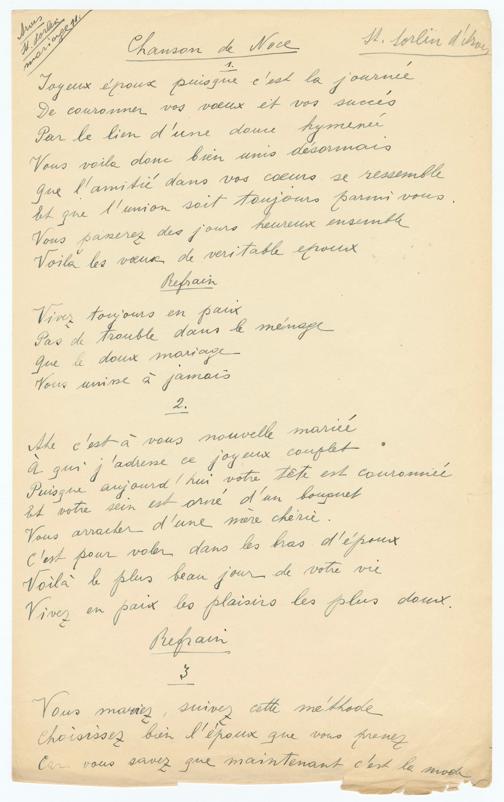 Arvis
St. Sorlin
mariages
St. Sorlin d'Arves
Chanson de Noce
1
Joyeux époux puisque c'est la journée
De couronner vos vœux et vos succés
Par le lien d'une douce hymenée
Vous voila donc bien unis désormais
Que l'amitié dans vos cœurs se ressemble
Et que l'union soit toujours parmi vous.
Vous passerez des jours heureux ensemble
Voilà les vœux de veritable epoux
Refrain
Vivez toujours en paix
Pas de trouble dans le ménage
Que le doux mariage
Vous unisse à jamais
2.
Ah c'est à vous nouvelle mariée
À qui j'adresse ce joyeux couplet
Puisque aujourd'hui votre tête est couronnée
Et votre sein est orné d'un bouquet
Vous arracher d'une mère chérie.
C'est pour voler dans les bras d'époux
Voilà le plus beau jour de votre vie
Vivez en paix les plaisirs les plus doux.
Refrain
3
Vous mariez, suivez cette méthode
Choisissez bien l'époux que vous prenez
Car vous savez que maintenant c'est la mode